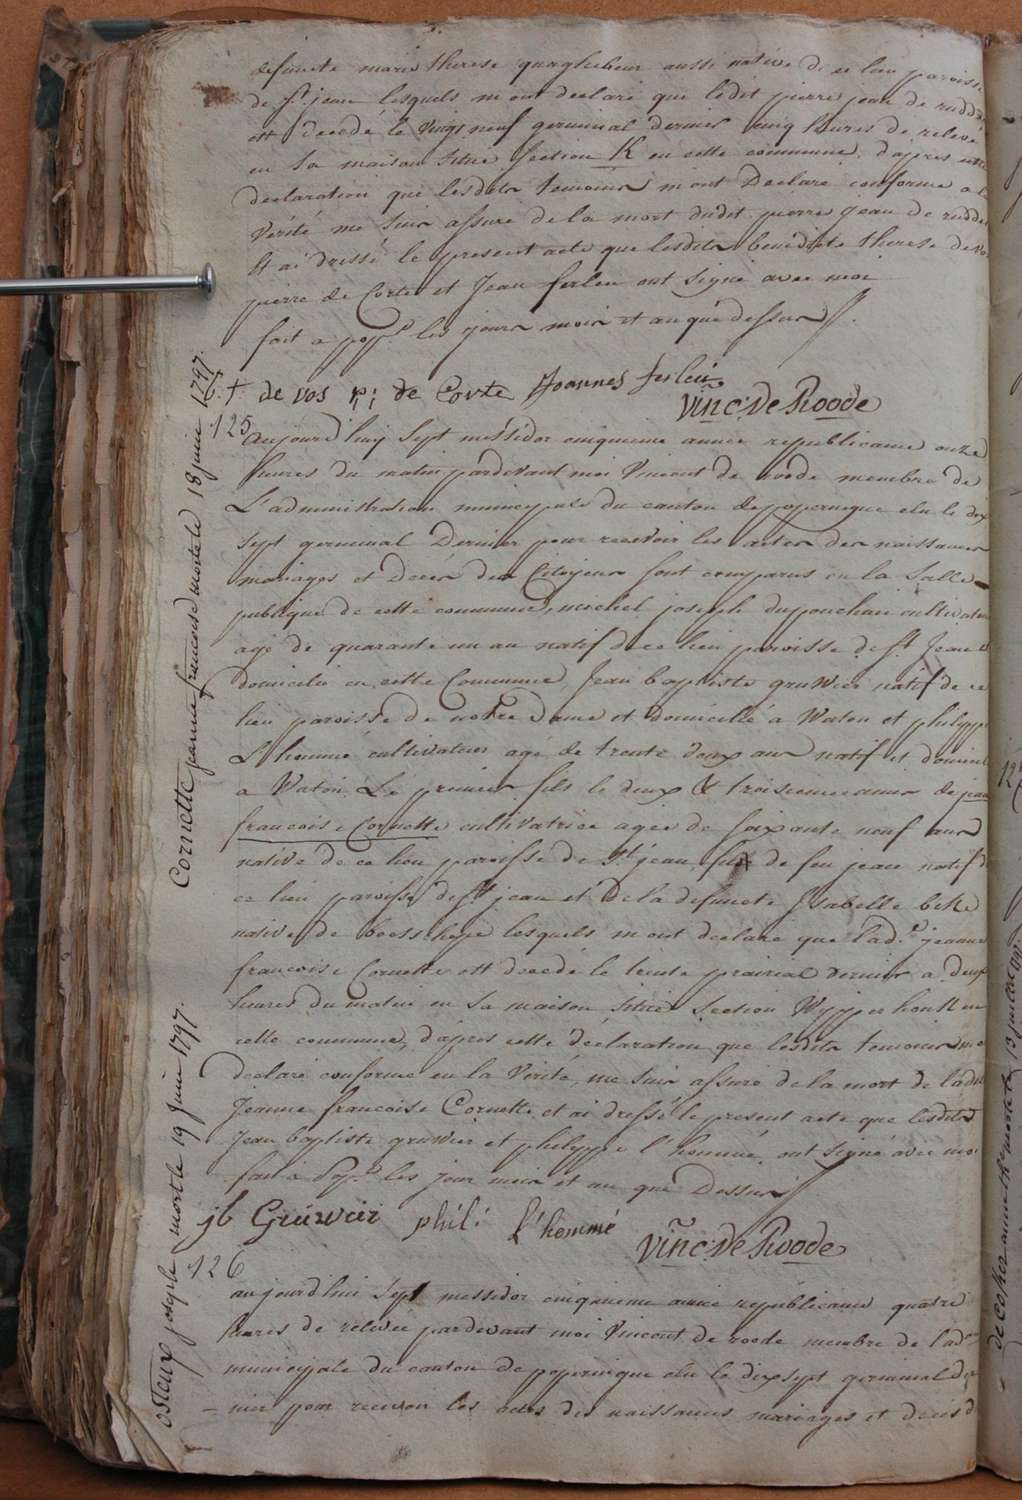 defuncte marie therese quaghebeur aussi native de ce lieu paroisse
de St jean lesquels m ont declaré que ledit pierre jean de rudde
est decedé le vingt neuf germinal dernier cinq heures de relevé
en sa maison situe section K en cette commune, d'apres cette
declaration que lesdits temoins m ont Declare conforme a la
vérité me suis assuré de la mort dudit pierre jean de rudde
Et ai dressé le present acte que lesdits benedicte therese de vos
pierre de Corte et Jean ferleu ont signé avec moi
fait a pop.e les jours mois et an que dessus
b. t. de vos p: j de Corte Joannes ferleu
Vinc: De Roode
125
aujourd'huy sept messidor cinquieme année republicaine onze
heures du matin pardevant moi Vincent de roode membre de
L'administration municipale du canton de poperingue elu le dix
sept germinal Dernier pour recevoir les actes des naissances
mariages et Deces des Citoyens sont comparus en la Salle
publique de cette commune, michel joseph dupouchau cultivateur
agé de quarante un an natif de ce lieu paroisse de St Jean et
domicilié en cette Commune, Jean baptiste gruwier natif de ce
lieu paroisse de notre Dame et domicilié a Watou et philippe
L'hommé cultivateur agé de trente deux ans natif et domicilié
a Watou. Le premier fils le deux & troisieme amis de jeanne
francoise Cornette cultivatrice agee de soixante neuf ans
native de ce lieu paroisse de St jean fille de feu jean natif de
ce lieu paroisse de St jean et De la defuncte Isabelle beke
native de boesschepe lesquels m ont declaré que lad.e jeanne
francoise Cornette est decede le trente prairial dernier a deux
heures du matin en sa maison située Section Wippenhoult en
cette commune, d'apres cette déclaration que lesdits temoins m ont
declare conforme en la Vérité, me suis assuré de la mort de ladite
Jeanne francoise Cornette et ai dressé le present acte que lesdits
Jean baptiste gruwier et philippe l'hommé ont signé avec moi
fait à Pop.e les jour mois et an que Dessus
jb Gruwier phili: l'hommé
Vinc: De Roode
126
aujourd'hui Sept messidor cinquieme année républicaine quatre
heures de relevée pardevant moi Vincent de roode membre de l'ad.on
municipale du canton de poperingue elu le dix sept germinal der
- nier pour recevoir les actes des naissances mariages et deces d
Cornette jeanne francoise morte le 18 juin 1797.
osteux joseph mort le 19 juin 1797.